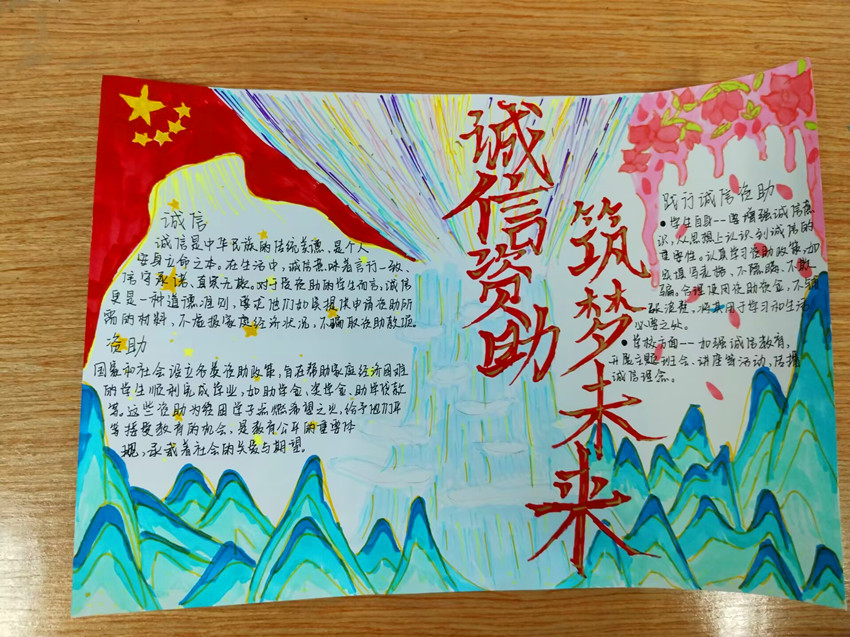 诚信资助
筑梦未来
诚信
诚信是中华民族的传统美德，是个人
安身立命之本。在生活中，诚信意味着言行一致、
信守承诺、真实无欺。对于受资助的学生而言，诚信
更是一种道德准则，要求他们如实提供申请资助所
需的材料，不虚报家庭经济状况，不骗取资助款项。
资助
国家和社会设立各类资助政策，旨在帮助家庭经济困难
的学生顺利完成学业，如助学金、奖学金、助学贷款
等。这些资助为贫困学子点燃希望之火，给予他们平
等接受教育的机会，是教育公平的重要体
现，承载着社会的关爱与期望。
践行诚信资助
●学生自身--要增强诚信意
识，从思想上认识到诚信的
重要性。认真学习资助政策，如
实填写表格，不隐瞒、不欺
骗。合理使用资助资金，不铺
张浪费，将其用于学习和生活
必需之处。
●学校方面--加强诚信教育，
开展主题班会、讲座等活动，传播
诚信理念。